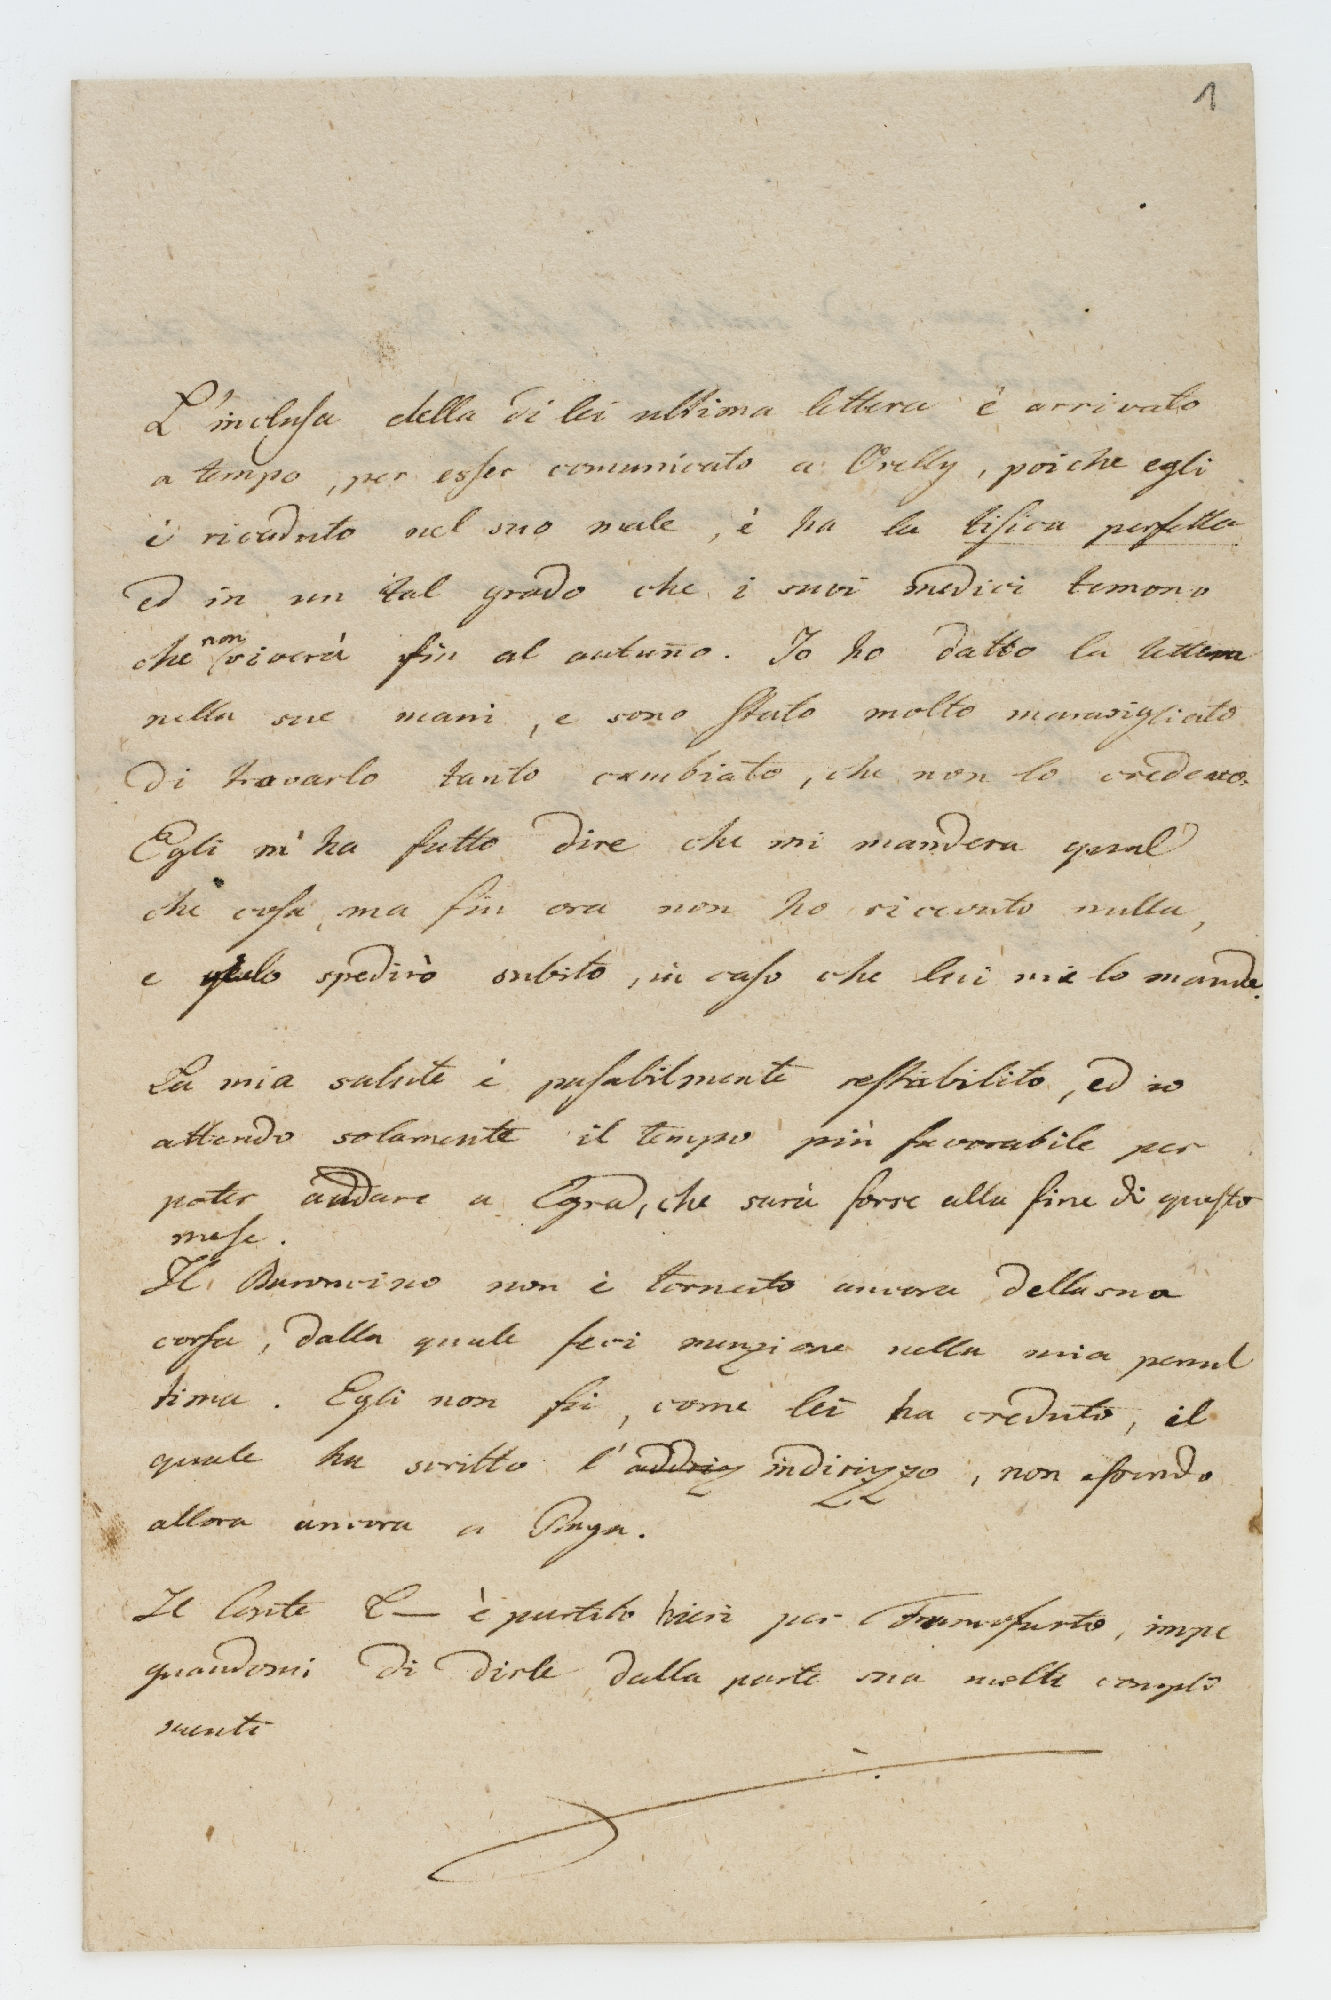 1
L'inclusa della di lei ultima lettera è arrivato
a tempo, per esser comunicato a Orelly, poiche egli
è ricaduto nel suo male, è ha la tisica perfetta
ed in un tal grado che i suoi medici temono
che non viverà fin al autuño. Io ho datto la lettera
nella sue mani, e sono stato molto maravigliato
di trovarlo tanto cambiato, che non lo credevo.
Egli m'ha fatto dire che mi mandera qual
che cosa, ma fin ora non ho ricevuto nulla,
e lo spedirò subito, in caso che lui mie lo mande.
La mia salute è passabilmente restabilito, ed io
attendo solamente il tempo più favorabile per
poter andare a Egra, che sarà forse alla fine di questo
mese.
Il Baroncino non è tornato ancora della sua
corsa, dalla quale feci menzione nella mia penul
tima. Egli non fù, come lei ha creduto, il
quale ha scritto l' addriz indirizzo, non essendo
allora ancora a Praga.
Il Conte L— è partito hieri per Francfurto, impe
gnandomi di dirle dalla parte sua molti compli
menti